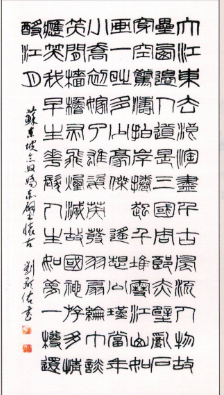 大江東去浪淘盡千古風流人物故
壘西邊人道是三國周郎赤壁亂石
穿空驚濤拍岸捲起千堆雪江山如
畫一時多少豪傑遙想公瑾當年
小喬初嫁了雄姿英發羽扇綸巾談
笑間檣櫓灰飛煙滅故國神遊多情
應笑我早生華髮人生如夢一樽還
酹江月
蘇東坡念奴嬌赤壁懷古 劉書